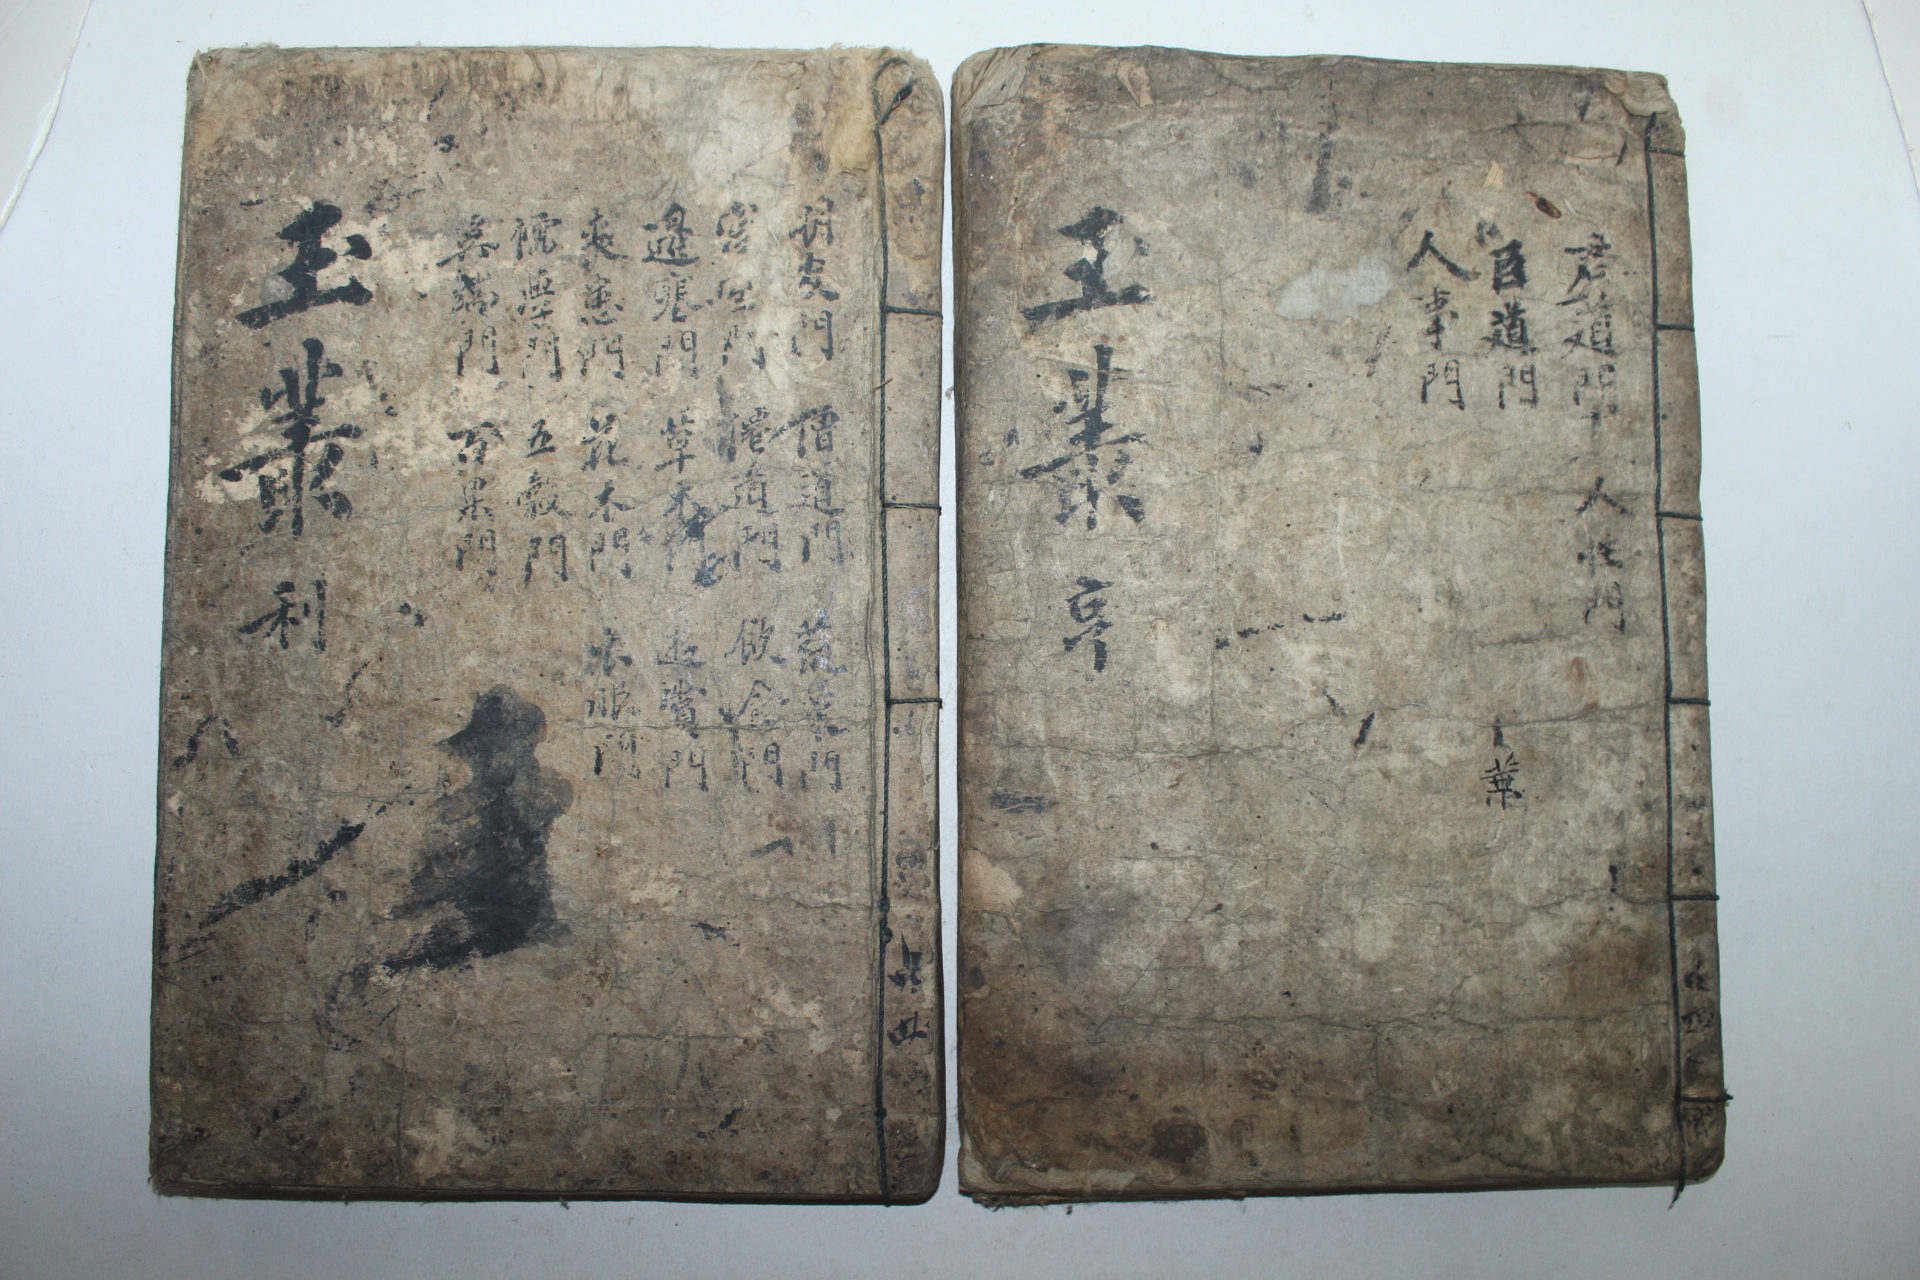 君道門 人性門
臣道門
人事門
葉
玉叢 亨
朋友門 僧道門 蔬菜門
宮室門 道門 飲食門
邊門 草木門 遊賞門
門 花木門 衣服門
儒學門 五穀門
異端門 百果門
玉叢 利
共四